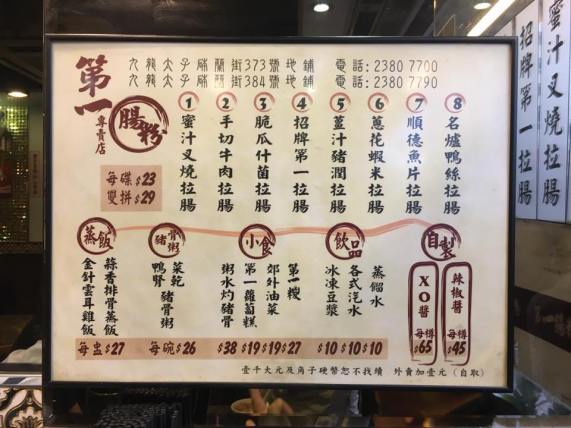 第一腸粉
專賣店
九龍太子砵蘭街373號地鋪 電話:2380 7700
九龍太子砵蘭街384號地鋪 電話:2380 7790
每碟$23
雙拼$29
1 蜜汁叉燒拉腸
2 手切牛肉拉腸
3 脆瓜什菌拉腸
4 招牌第一拉腸
5 薑汁豬潤拉腸
6 蔥花蝦米拉腸
7 順德魚片拉腸
8 名爐鴨絲拉腸
蒸飯
蒜香排骨蒸飯
金針雲耳雞飯
每盅$27
豬骨粥
菜乾豬骨粥
鴨腎
每碗$26
小食
粥水灼豬骨 $38
第一蘿蔔糕 $19
郊外油菜 $19
第一糭 $27
飲品
冰凍豆漿 $10
各式汽水 $10
蒸餾水 $10
自製
XO醬 每樽$65
辣椒醬 每樽$45
壹千大元及角子硬幣恕不找續 外賣加壹元(自取)
招牌第一拉腸
蜜汁叉燒拉腸